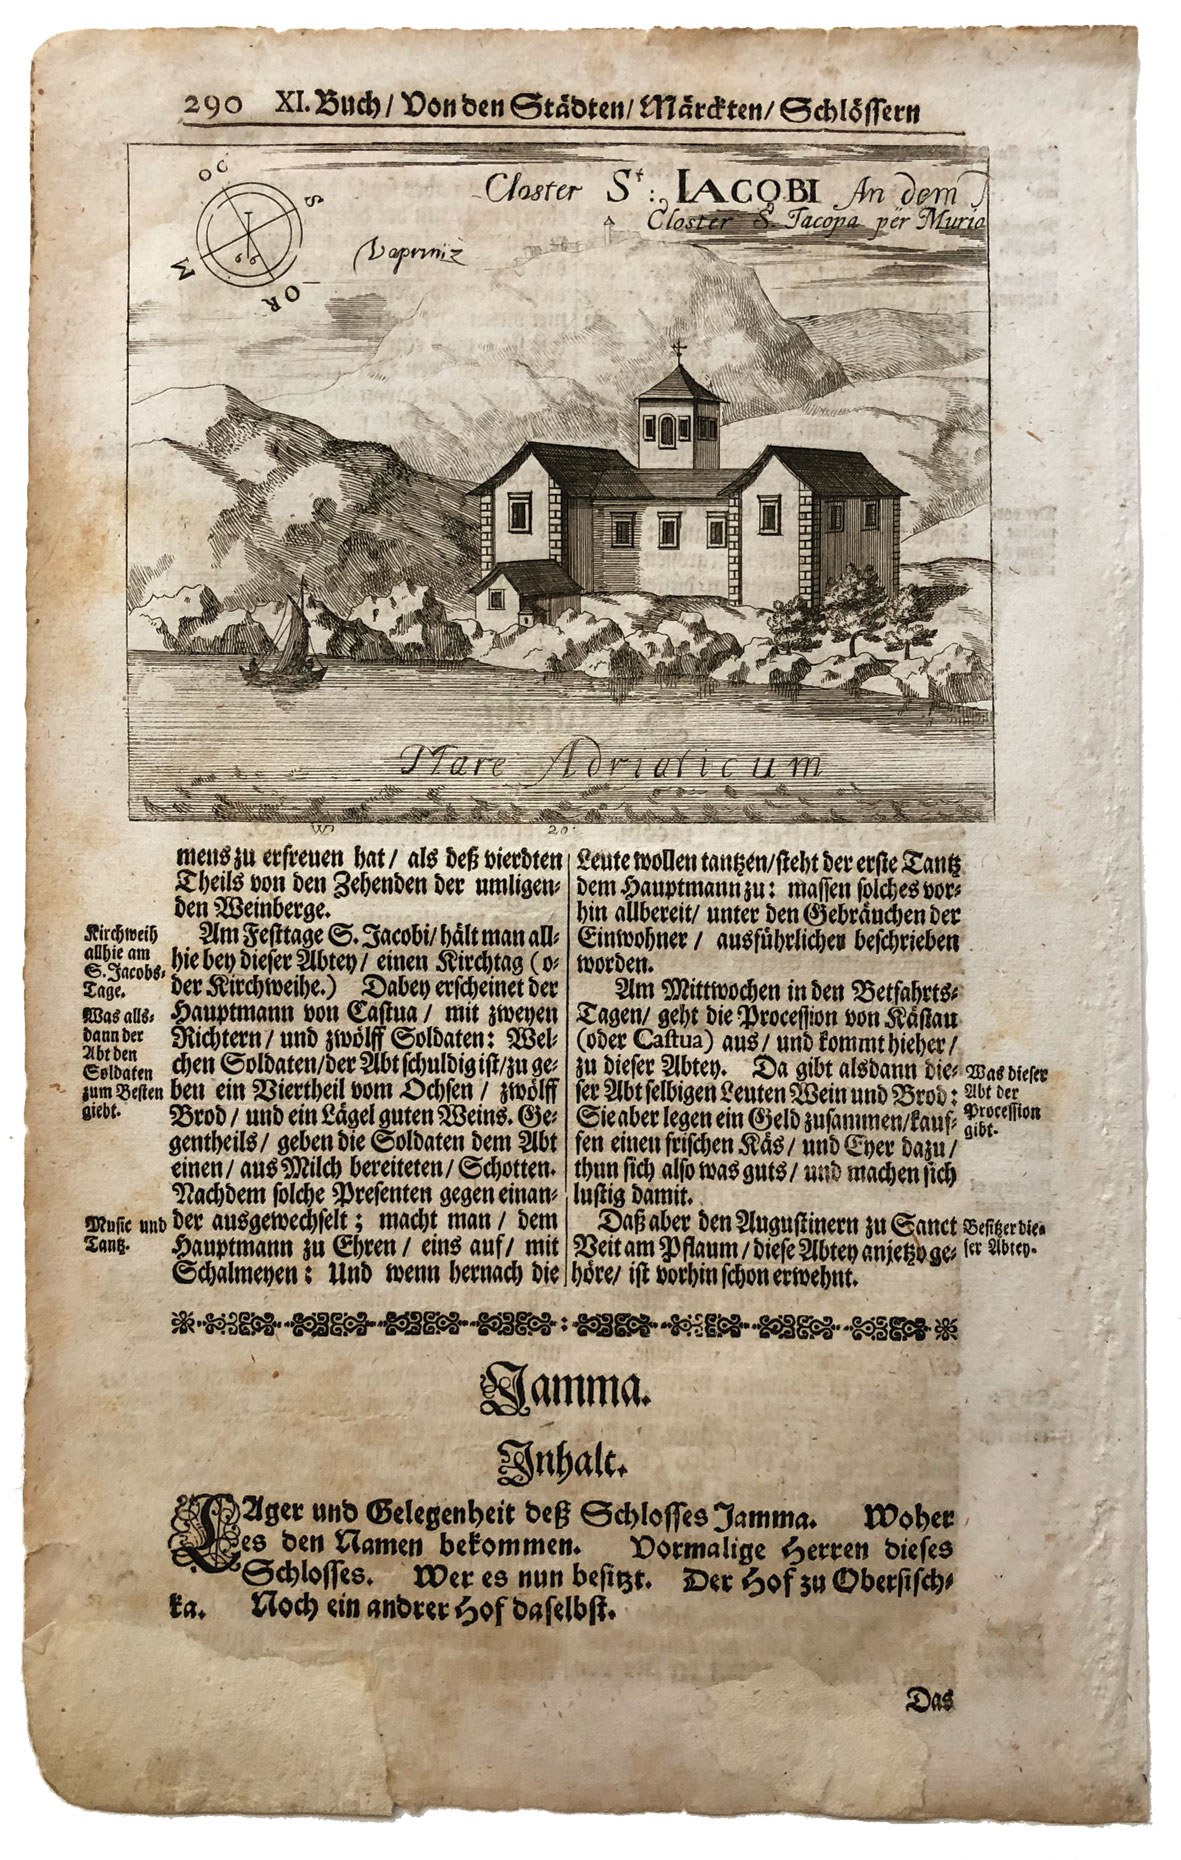 290 XI. Buch/ Von den Städten/ Märckten/ Schlössern
OC
S
M
OR
Closter St: IACOBI An dem
Closter S. Jacopa për Muria
Vapriniz
Mare Adriaticum
W
20:
mens zu erfreuen hat/ als deß vierdten
Theils von den Zehenden der umligen-
den Weinberge.
Kirchweih
allhie am
S. Jacobs-
Tage.
Am Festtage S. Jacobi/ hält man all-
hie bey dieser Abtey/ einen Kirchtag (o-
der Kirchweihe.) Dabey erscheinet der
Was alls-
dann der
Abt den
Soldaten
zum Besten
giebt.
Hauptmann von Castua/ mit zweyen
Richtern/ und zwölff Soldaten: Wel-
chen Soldaten/ der Abt schuldig ist/ zu ge-
ben ein Viertheil vom Ochsen/ zwölff
Brod/ und ein Lägel guten Weins. Ge-
gentheils/ geben die Soldaten dem Abt
einen/ aus Milch bereiteten/ Schotten.
Nachdem solche Presenten gegen einan-
Music und
Tantz.
der ausgewechselt; macht man/ dem
Hauptmann zu Ehren/ eins auf/ mit
Schalmeyen: Und wenn hernach die
Leute wollen tantzen/ steht der erste Tantz
dem Hauptmann zu: massen solches vor-
hin allbereit/ unter den Gebräuchen der
Einwohner/ ausführlicher beschrieben
worden.
Am Mittwochen in den Betfahrts-
Tagen/ geht die Procession von Kästau
(oder Castua) aus/ und kommt hieher/
zu dieser Abtey. Da gibt alsdann die-
ser Abt selbigen Leuten Wein und Brod:
Sie aber legen ein Geld zusammen/ kauf-
fen einen frischen Käs/ und Eyer dazu/
thun sich also was guts/ und machen sich
lustig damit.
Was dieser
Abt der
Procession
gibt.
Daß aber den Augustinern zu Sanct
Veit am Pflaum/ diese Abtey anjetzo ge-
höre/ ist vorhin schon erwehnt.
Besitzer die-
ser Abtey.
Jamma.
Inhalt.
LAger und Gelegenheit deß Schlosses Jamma. Woher
es den Namen bekommen. Vormalige Herren dieses
Schlosses. Wer es nun besitzt. Der Hof zu Obersisch-
ka. Noch ein andrer Hof daselbst.
Das